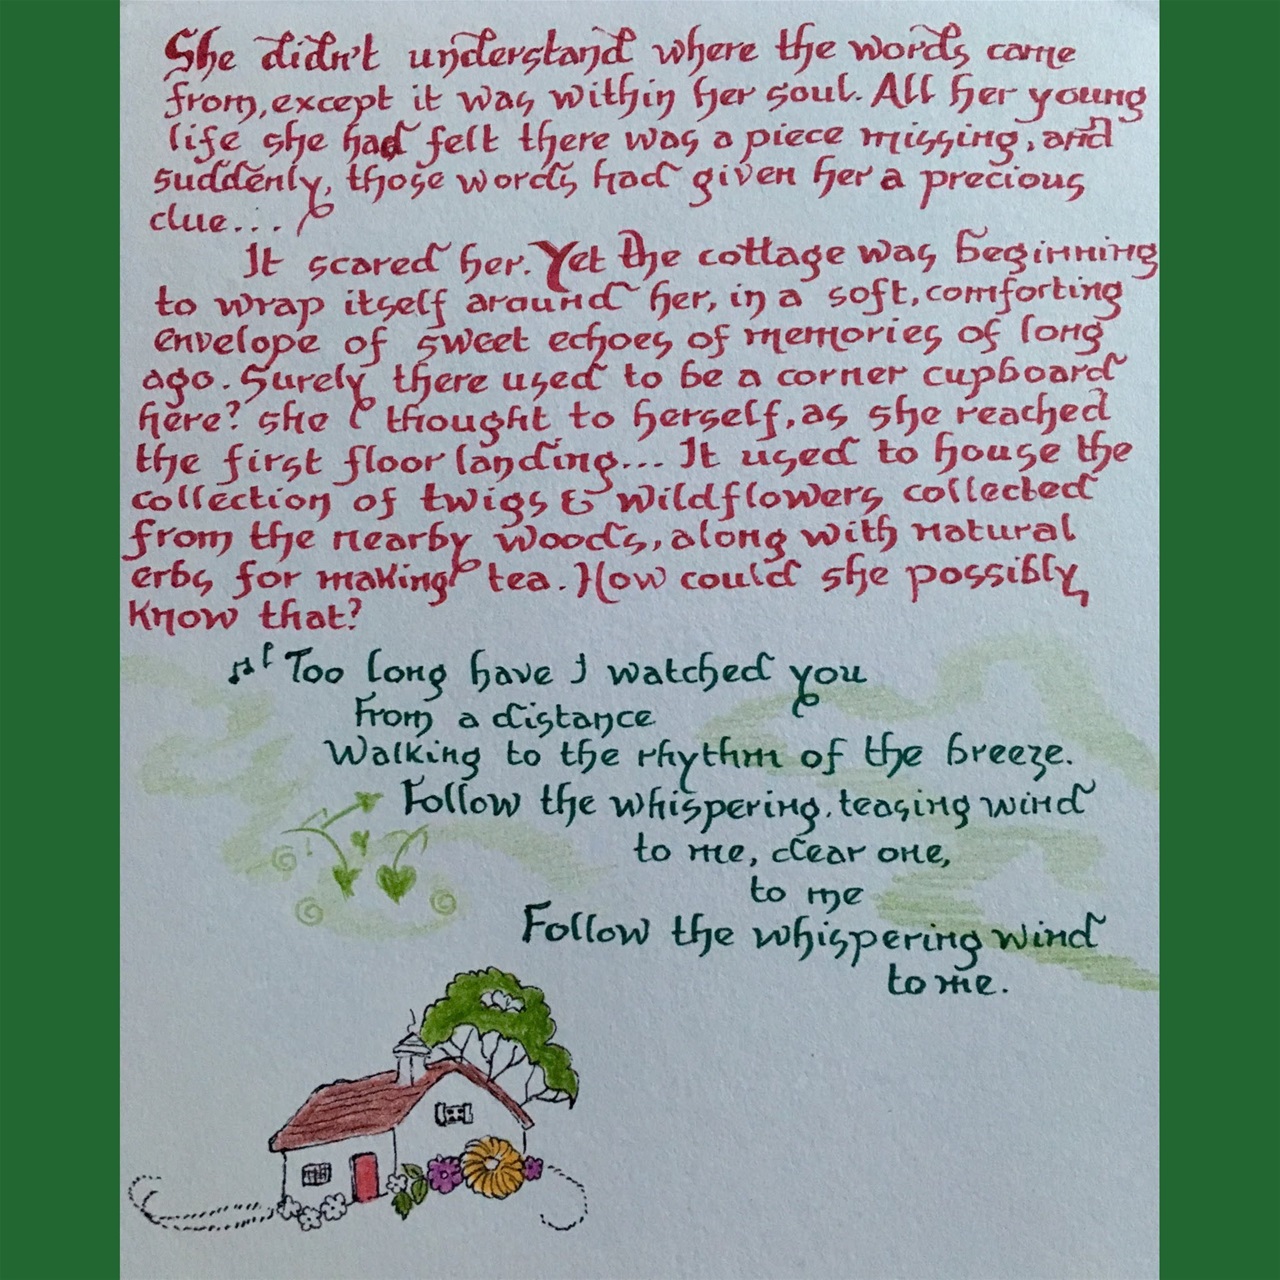 She didn't understand where the words came
from, except it was within her soul. All her young
life she had felt there was a piece missing, and
suddenly, those words had given her a precious
clue...
It scared her. Yet the cottage was beginning
to wrap itself around her, in a soft, comforting
envelope of sweet echoes of memories of long
ago. Surely there used to be a corner cupboard
here? she thought to herself, as she reached
the first floor landing... It used to house the
collection of twigs & wildflowers collected
from the nearby woods, along with natural
erbs for making tea. How could she possibly
know that?
♫ Too long have I watched you
From a distance
Walking to the rhythm of the breeze.
Follow the whispering, teasing wind
to me, clear one,
to me
Follow the whispering wind
to me.